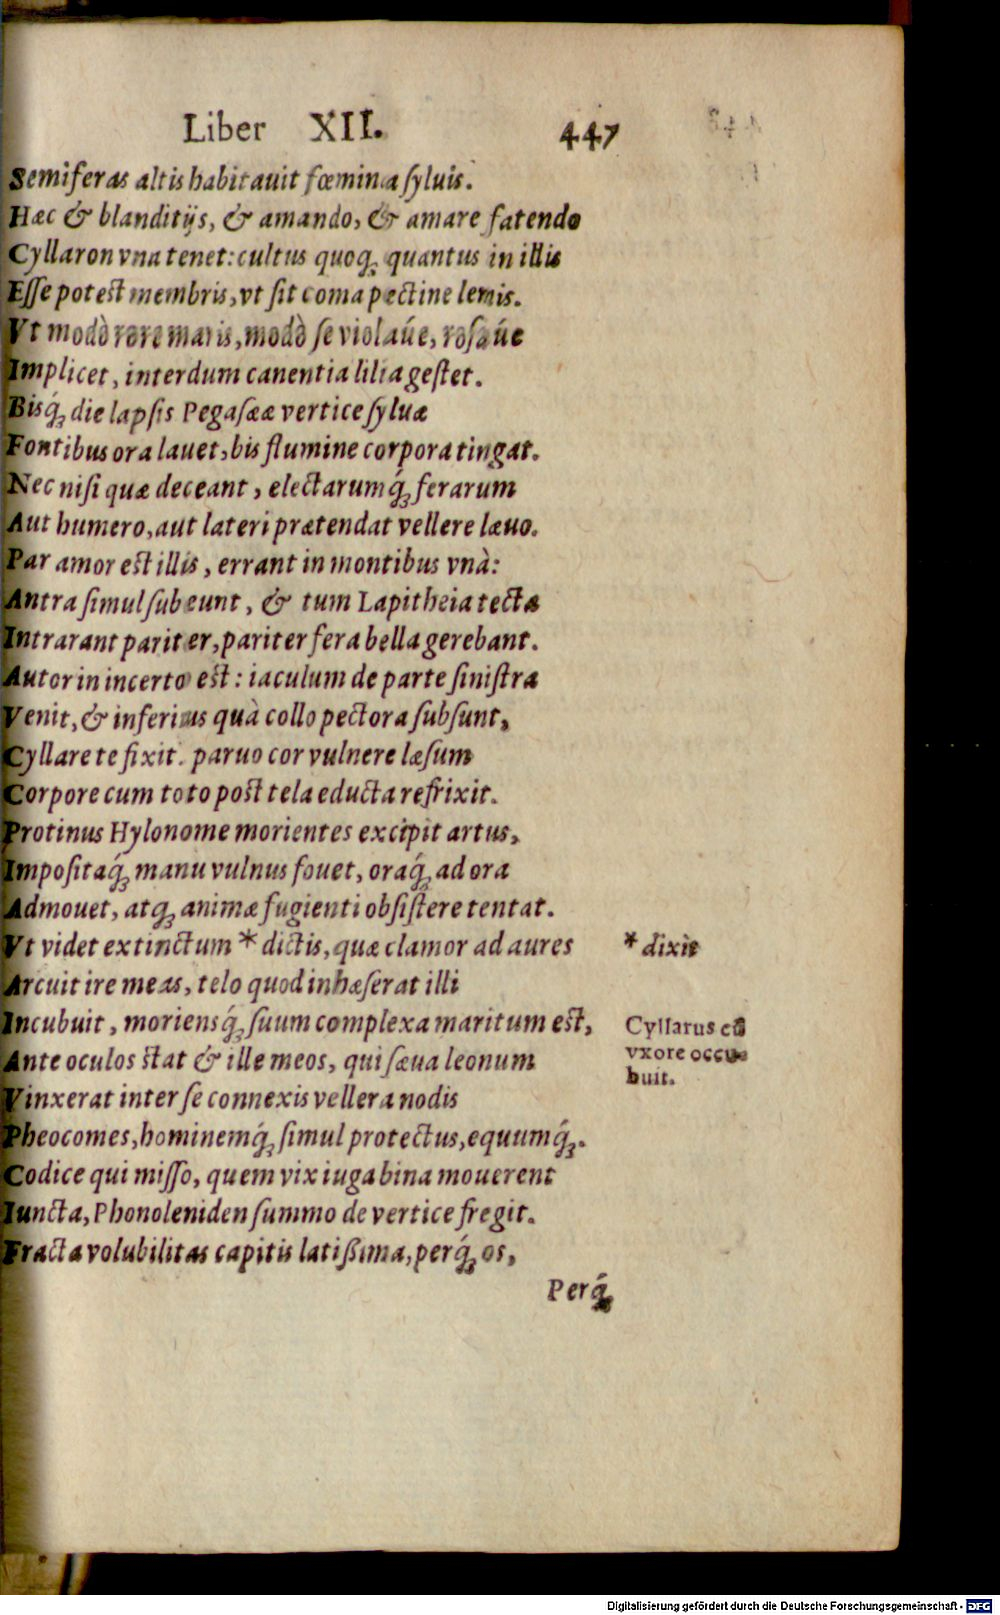 Liber XII. 447
Semiferas altis habitauit fœmina ſyluis.
Hæc & blanditijs, & amando, & amare fatendo
Cyllaron vna tenet: cultus quoq; quantus in illis
Eſſe potest membris, vt ſit coma pectine leuis.
Vt modò rore maris, modò ſe violaúe, roſaúe
Implicet, interdum canentia lilia geſtet.
Bisq́; die lapſis Pegaſææ vertice ſyluæ
Fontibus ora lauet, bis flumine corpora tingat.
Nec niſi quæ deceant, electarumq́; ferarum
Aut humero, aut lateri prætendat vellere læuo.
Par amor est illis, errant in montibus vnà:
Antra ſimul ſubeunt, & tum Lapitheia tecta
Intrarant pariter, pariter fera bella gerebant.
Autor in incerto est: iaculum de parte ſiniſtra
Venit, & inferius quà collo pectora ſubſunt,
Cyllare te fixit. paruo cor vulnere læſum
Corpore cum toto post tela educta refrixit.
Protinus Hylonome morientes excipit artus,
Impoſitaq́; manu vulnus fouet, oraq́; ad ora
Admouet, atq; animæ fugienti obſiſtere tentat.
Vt videt extinctum * dictis, quæ clamor ad aures * dixit
Arcuit ire meas, telo quod inhæſerat illi
Incubuit, moriensq́; ſuum complexa maritum est,
Cyllarus cũ
vxore occu-
buit.
Ante oculos stat & ille meos, qui ſæua leonum
Vinxerat inter ſe connexis vellera nodis
Pheocomes, hominemq́; ſimul protectus, equumq́;.
Codice qui miſſo, quem vix iuga bina mouerent
Iuncta, Phonoleniden ſummo de vertice fregit.
Fracta volubilitas capitis latißima, perq́; os,
Perq́;
Digitalisierung gefördert durch die Deutsche Forschungsgemeinschaft - DFG